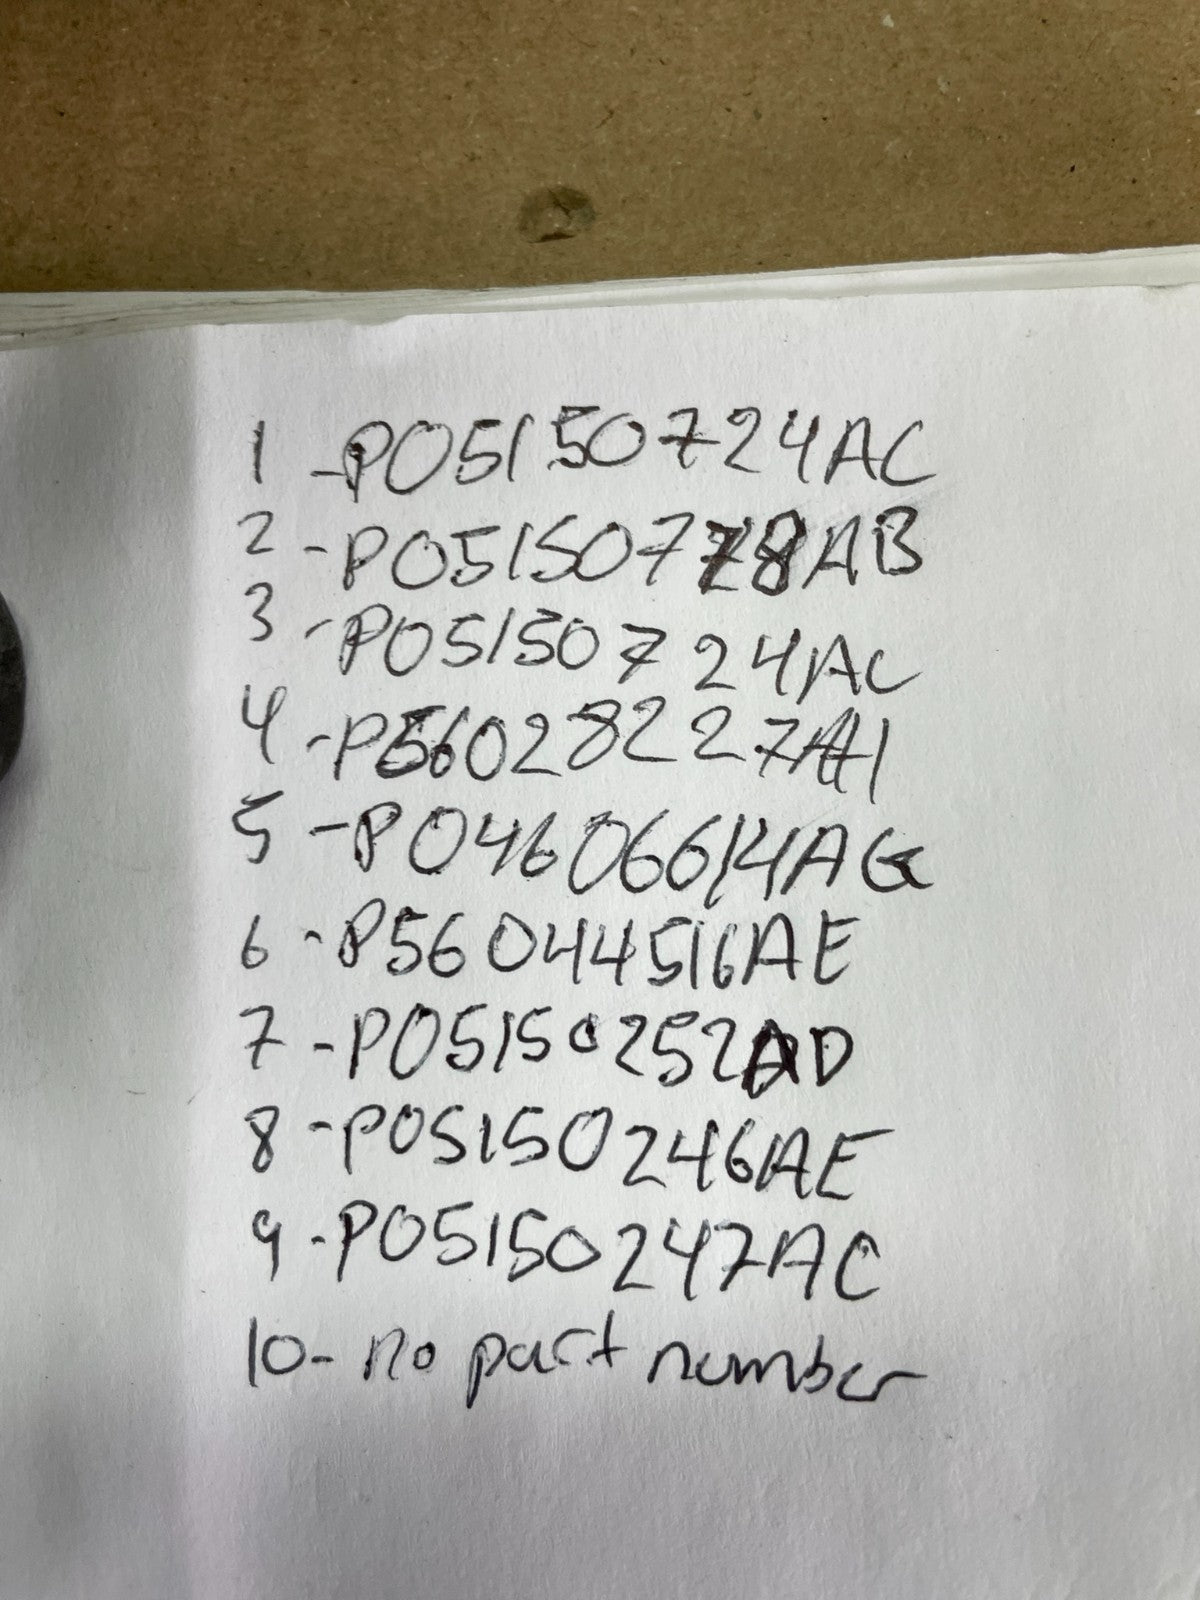 1 -P05150724AC
2 -P05150778AB
3 -P05150724AC
4 -P56028227AI
5 -P04606614AG
6 -P56044516AE
7 -P05150252AD
8 -P05150246AE
9 -P05150247AC
10- no part number